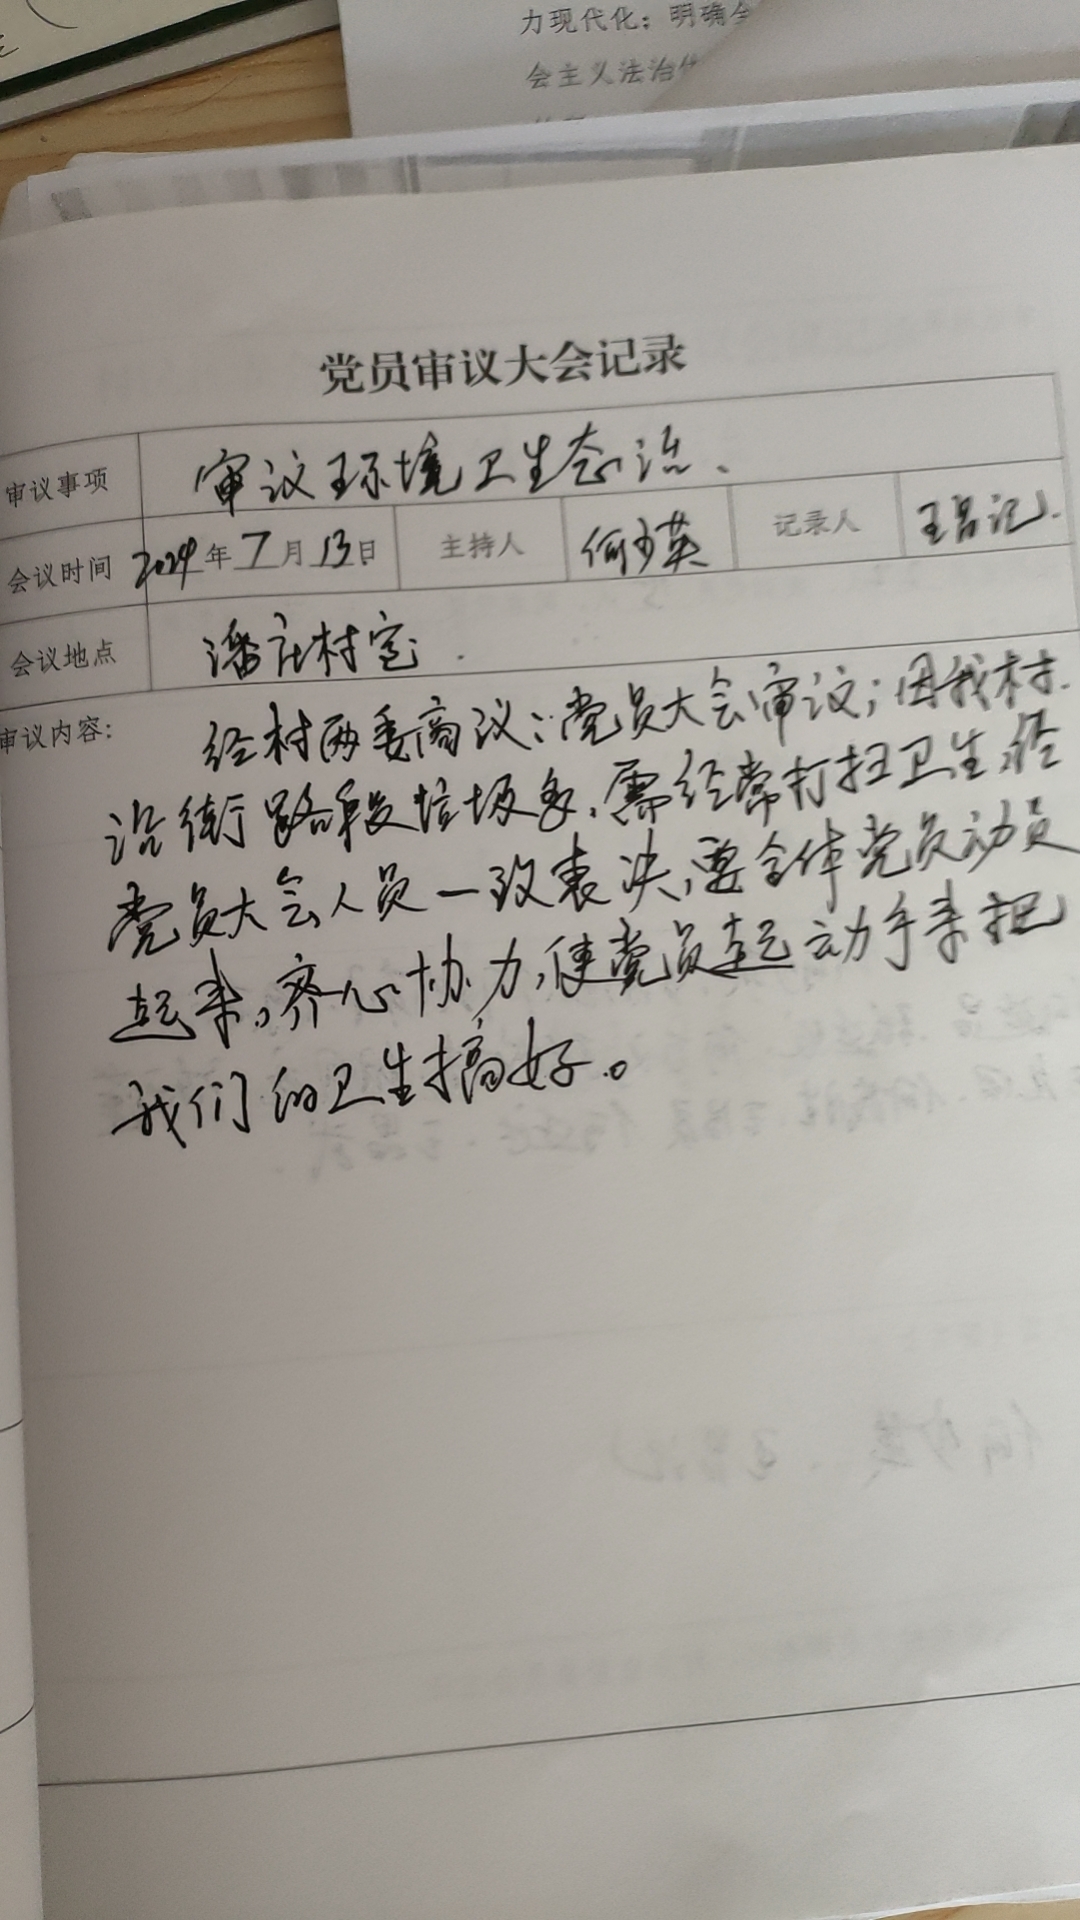 力现代化；明确全
会主义法治
党员审议大会记录
审议事项 审议环境卫生态治、
会议时间 2024年7月13日 主持人 何少英 记录人 王昌记
会议地点 潘庄村室
审议内容： 经村两委商议：党员大会审议；因我村
沿街路段垃圾多，需经常打扫卫生，经
党员大会人员一致表决，要全体党员动员
起来，齐心协力，使党员起动手来把
我们的卫生搞好。